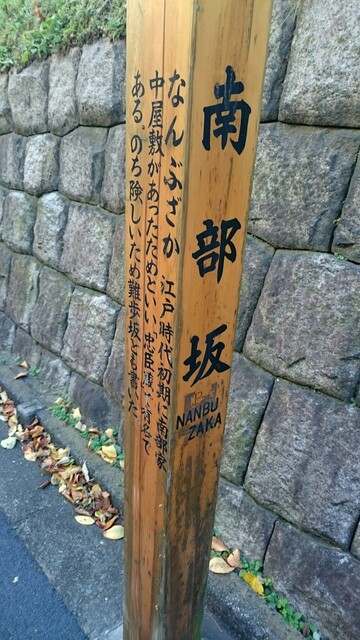 南部坂
NANBU
ZAKA
なんぶざか 江戸時代初期に南部家
中屋敷があったためといい、忠臣蔵で有名で
ある。のち険しいため難歩坂とも書いた。